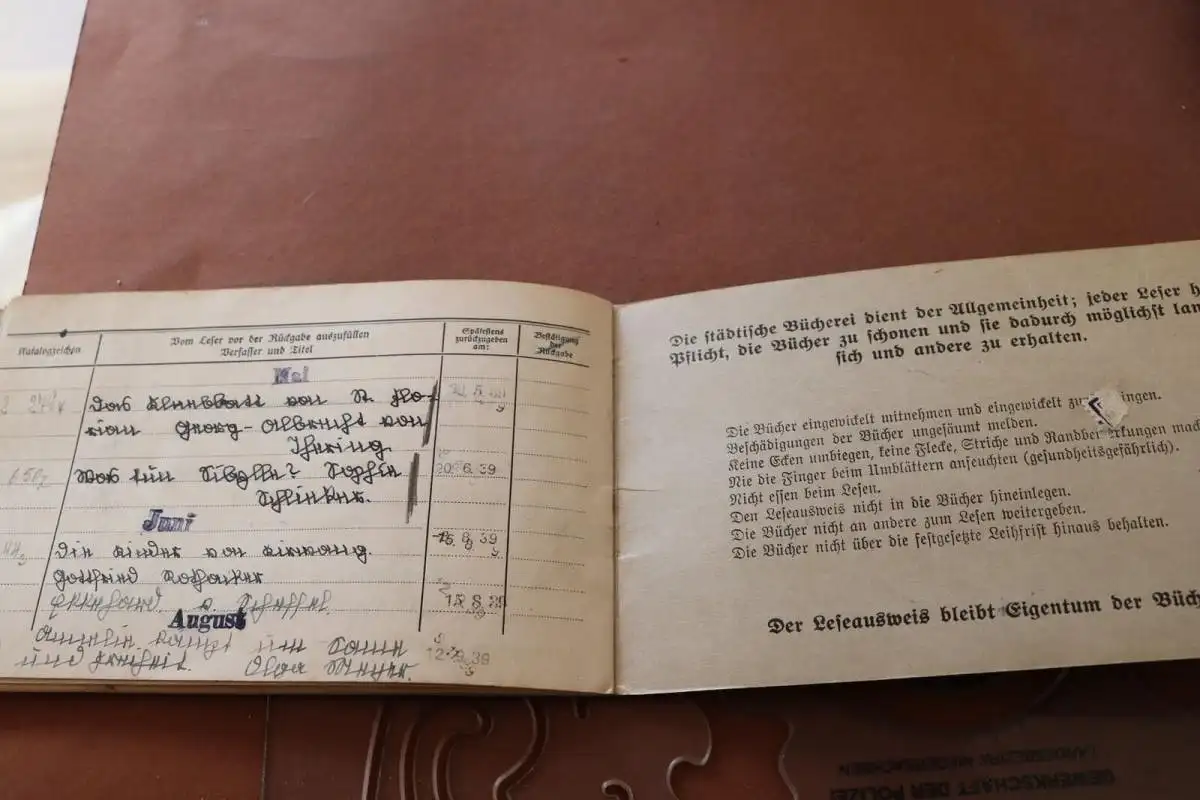 Katalogzeichen
Vom Leser vor der Rückgabe auszufüllen
Verfasser und Titel
Spätestens
zurückzugeben
am:
Bestätigung
der
Rückgabe
Mai
Das von St. Flo-
rian Georg-Albrecht von
Ihering.
5. 39
Was tun Sibylle? Sophie
Schlinker.
20. 6. 39
Juni
Die Kinder von Kirwang.
15. 8. 39
Gottfried Rothacker
Ekkehard v. Scheffel.
15. 8. 39
August
Annelin kämpft um Sonne
und Freiheit. Olga Meyer.
12. 9. 39
Die städtische Bücherei dient der Allgemeinheit; jeder Leser h
Pflicht, die Bücher zu schonen und sie dadurch möglichst lan
sich und andere zu erhalten.
Die Bücher eingewickelt mitnehmen und eingewickelt zu ingen.
Beschädigungen der Bücher ungesäumt melden.
Keine Ecken umbiegen, keine Flecke, Striche und Randbemerkungen mac
Nie die Finger beim Umblättern anfeuchten (gesundheitsgefährlich).
Nicht essen beim Lesen.
Den Leseausweis nicht in die Bücher hineinlegen.
Die Bücher nicht an andere zum Lesen weitergeben.
Die Bücher nicht über die festgesetzte Leihfrist hinaus behalten.
Der Leseausweis bleibt Eigentum der Büch
GEWERKSCHAFT DER POLIZEI
LANDESBEZIRK NIEDERSACHSEN